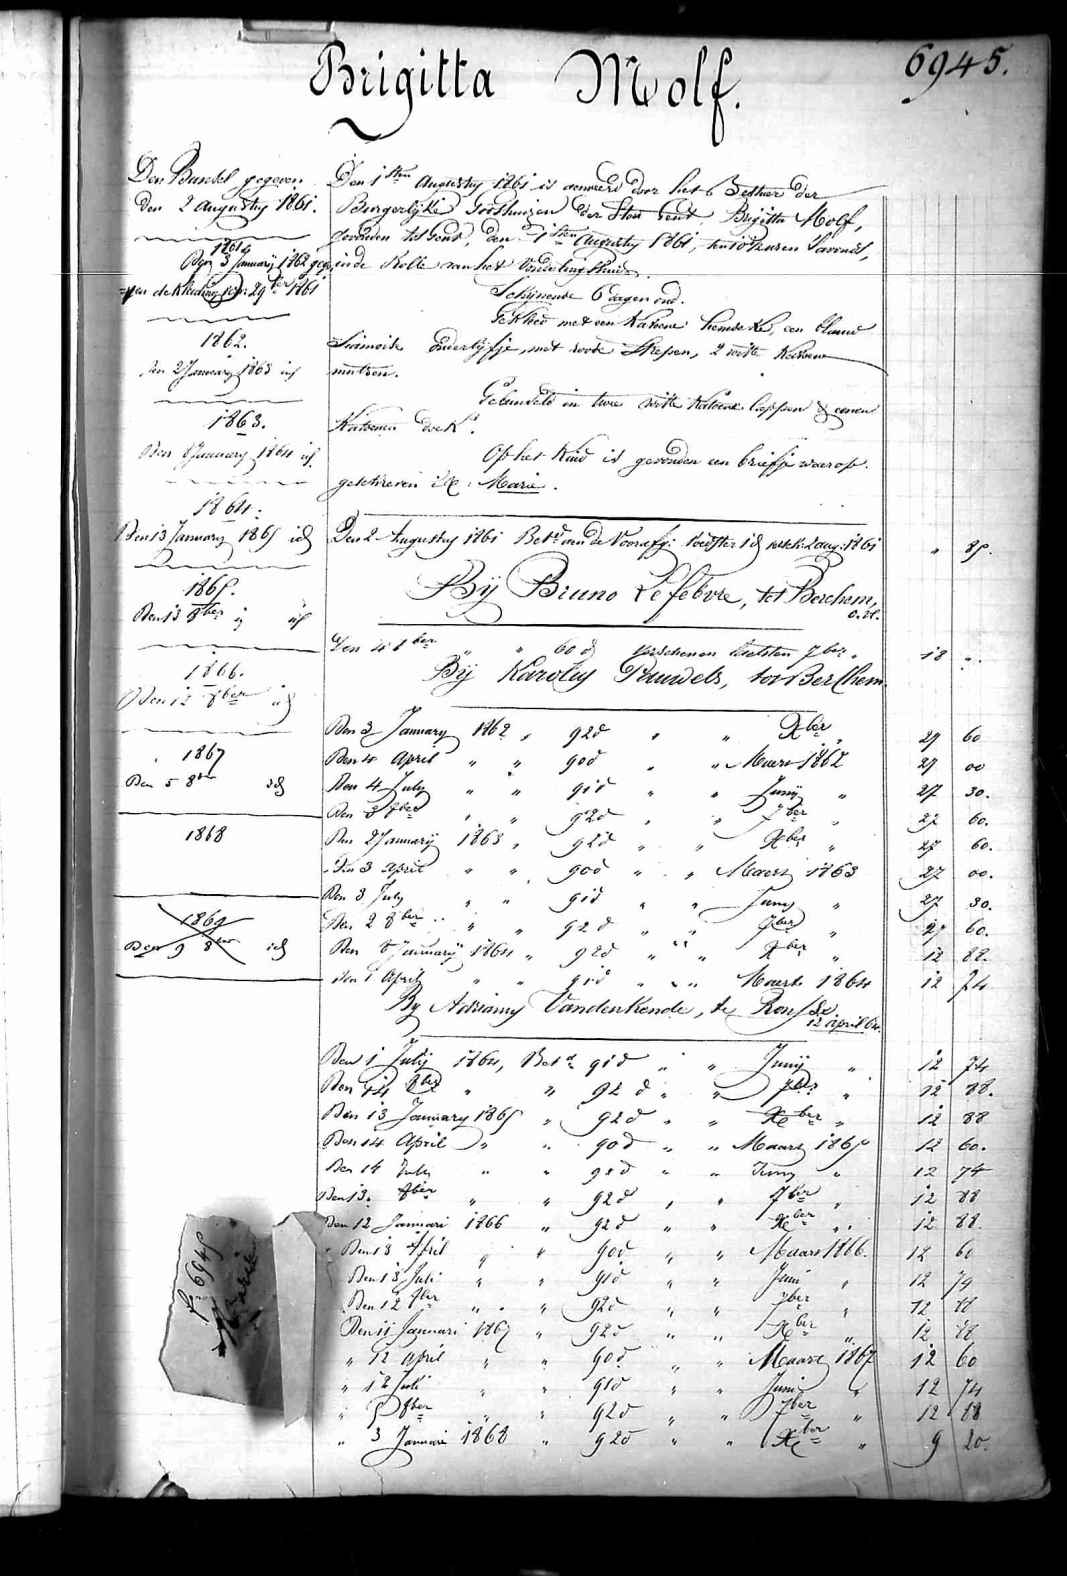 6945.
Brigitta Molf.
Den Bundel gegeven
den 2 Augusty 1861.
1861
Den 3 January 1862 gege-
ven de Kleeding 29 ber 1861
1862.
Den 2 January 1863 id
1863.
Den 8 January 1864 id
1864:
Den 13 January 1865 id
1865.
Den 13 8ber id
1866.
Den 12 8ber id
1867
Den 5 8ber id
1868
1869
Den 9 8ber id
Den 1sten Augusty 1861 is door het Bestuer der
Burgerlijke Godshuizen der Stad Gend, Brigitta Molf,
gevonden tot Gend, den 1sten Augusty 1861, ten 10 Huren S'avonds,
in de Rolle van het Vondelinghuis.
Schijnende 6 dagen oud.
Gekleed met een Katoene hemdeke, een blauw
onderlijfje, met roode Strepen, 2 witte Katoene
mutsen.
Gebundeld in twee witte Katoene lappen & eenen
Katoenen doek.
Op het Kind is gevonden een briefje waerop
geschreven is: Marie.
Den 2 Augusty 1861 Bet. aan de Voedster 2 aug: 1861 " 85.
Bij Bruno Lefebvre, tot Berchem,
Den 4 8ber " " 60 d verschenen 7ber " 18 "
Bij Karolus Pauwels, tot Berchem.
Den 3 January 1862 " 92d " " Xber " 29 60
Den 4 April " " 90d " " Maert 1862 27 00
Den 4 July " " 91d " " Junij " 27 30.
Den 3 8ber " " 92d " " 7ber " 27 60.
Den 2 January 1863 " 92d " " Xber " 27 60.
Den 3 April " " 90d " " Maert 1863 27 00.
Den 3 July " " 91d " " Juny " 27 30.
Den 2 8ber " " 92d " " 7ber " 27 60.
Den 8 January 1864 " 92d " " Xber " 12 88.
Den 1 April " " 91d " " Maert 1864 12 74
By Adrianus Vandenkende, te Ronsse.
12 April 64.
Den 1 July 1864, Bet. 91d " " Junij " 12 74
Den 14 8ber " " 92 d " " 7ber " 12 88.
Den 13 January 1865 " 92d " " Xber " 12 88
Den 14 April " " 90d " " Maart 1865 12 60.
Den 14 July " " 91d " " Juny " 12 74
Den 13. 8ber " " 92d " " 7ber " 12 88
Den 12 Januari 1866 " 92d " " Xber " 12 88.
" Den 13 April " " 90d " " Maart 1866. 12 60
Den 13 Juli " " 91d " " Juni " 12 74
Den 12 8ber " " 92d " " 7ber " 12 88
Den 11 Januari 1867 " 92d " " Xber " 12 88
" 12 April " " 90d " " Maart 1867 12 60
" 12 Juli " " 91d " " Juni " 12 74
" 5 8ber " " 92d " " 7ber " 12 88
" 3 Januari 1868 " 92d " " Xber " 9 20.
6945
Marie